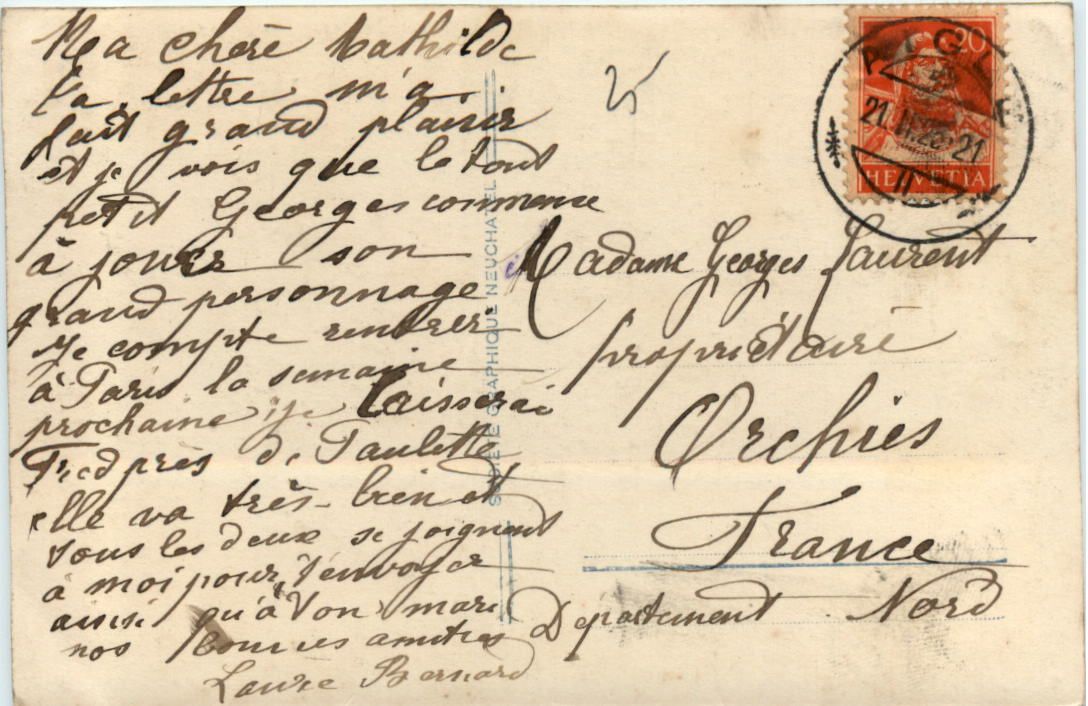 Ma chère Mathilde
Ta lettre m'a
fait grand plaisir
et je vois que le tout
petit Georges commence
à jouer son
grand personnage
Je compte rentrer
à Paris la semaine
prochaine je laisserai
Fred près de Paulette
elle va très-bien et
tous les deux se joignent
à moi pour t'envoyer
ainsi qu'à ton mari
nos bonnes amitiés
Laure Bernard
SOCIÉTÉ GRAPHIQUE NEUCHATEL
25
20
HELVETIA
21
Madame Georges Laurent
propriétaire
Orchies
France
Département Nord